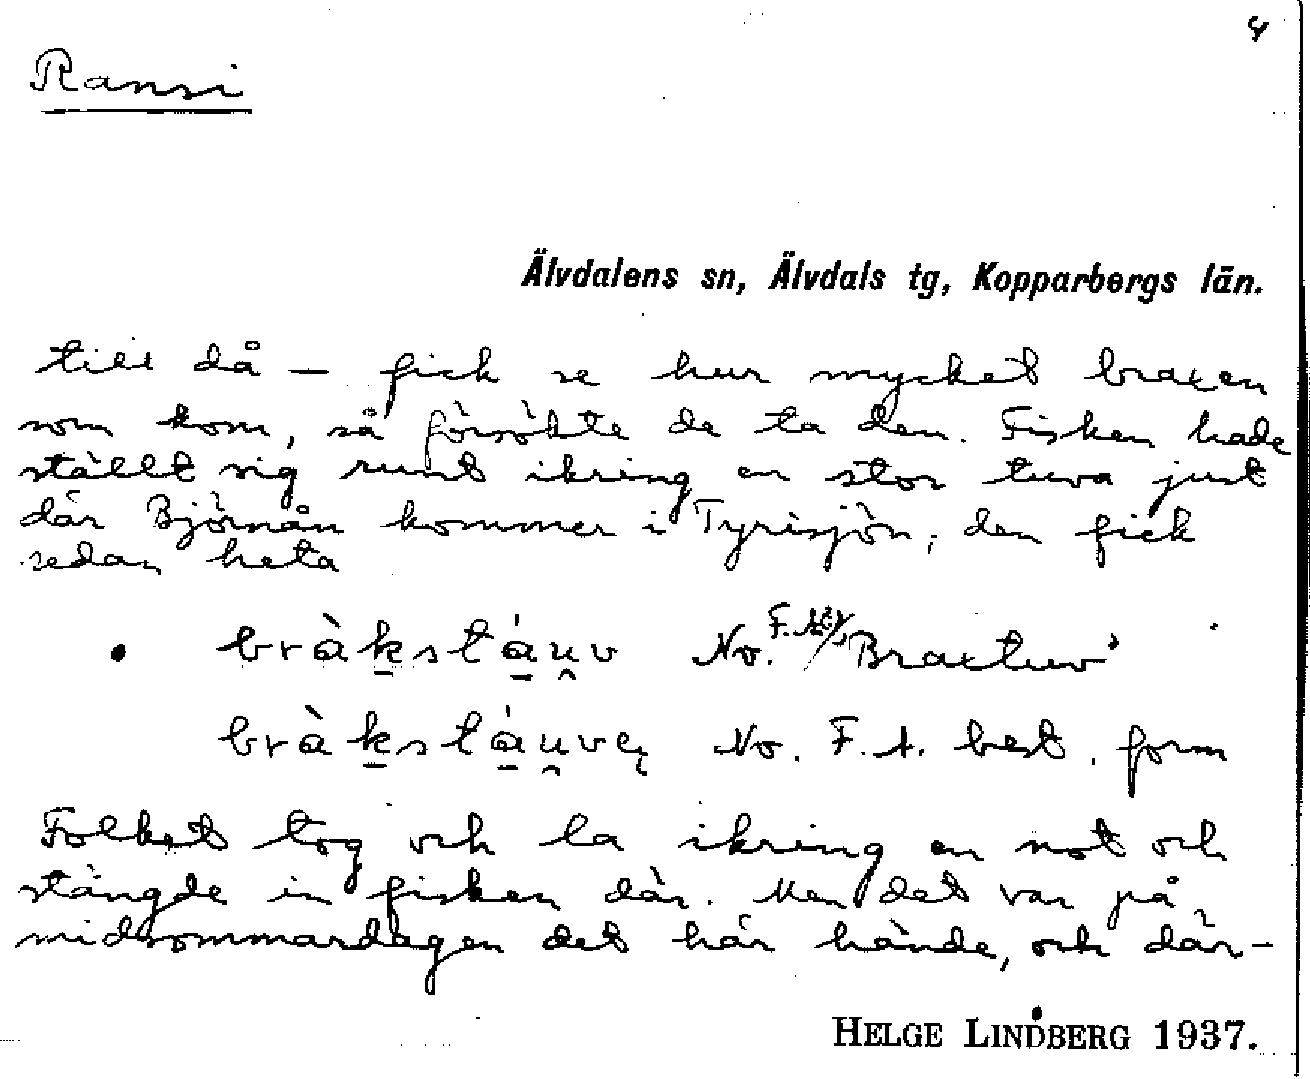 4
Ransi
Älvdalens sn, Älvdals tg, Kopparbergs län.
till då – fick se hur mycket braxen
som kom, så försökte de ta den. Fisken hade
ställt sig runt ikring en stor tuva just
där Björnån kommer i Tyrisjön; den fick
sedan heta
• bràkstáu̯v No. F. Braxtuv'
bràkstáu̯vę No. F. A. best. form
Folket tog och la ikring en not och
stängde in fisken där. Men det var på
midsommardagen det här hände, och där-
HELGE LINDBERG 1937.